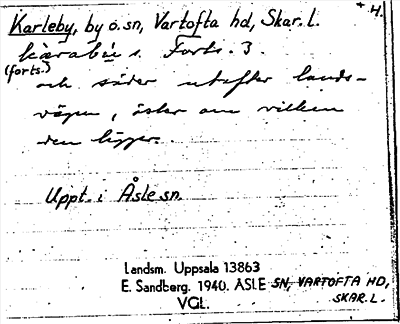 + H.
Karleby, by o. sn, Vartofta hd, Skar. l.
kærabÿ s. Forts. 3.
(forts.)
och söder utefter lands-
vägen, öster om vilken
den ligger.
Uppt. i Åsle sn.
Landsm. Uppsala 13863
E. Sandberg. 1940. ÅSLE SN, VARTOFTA HD,
VGL. SKAR. L.